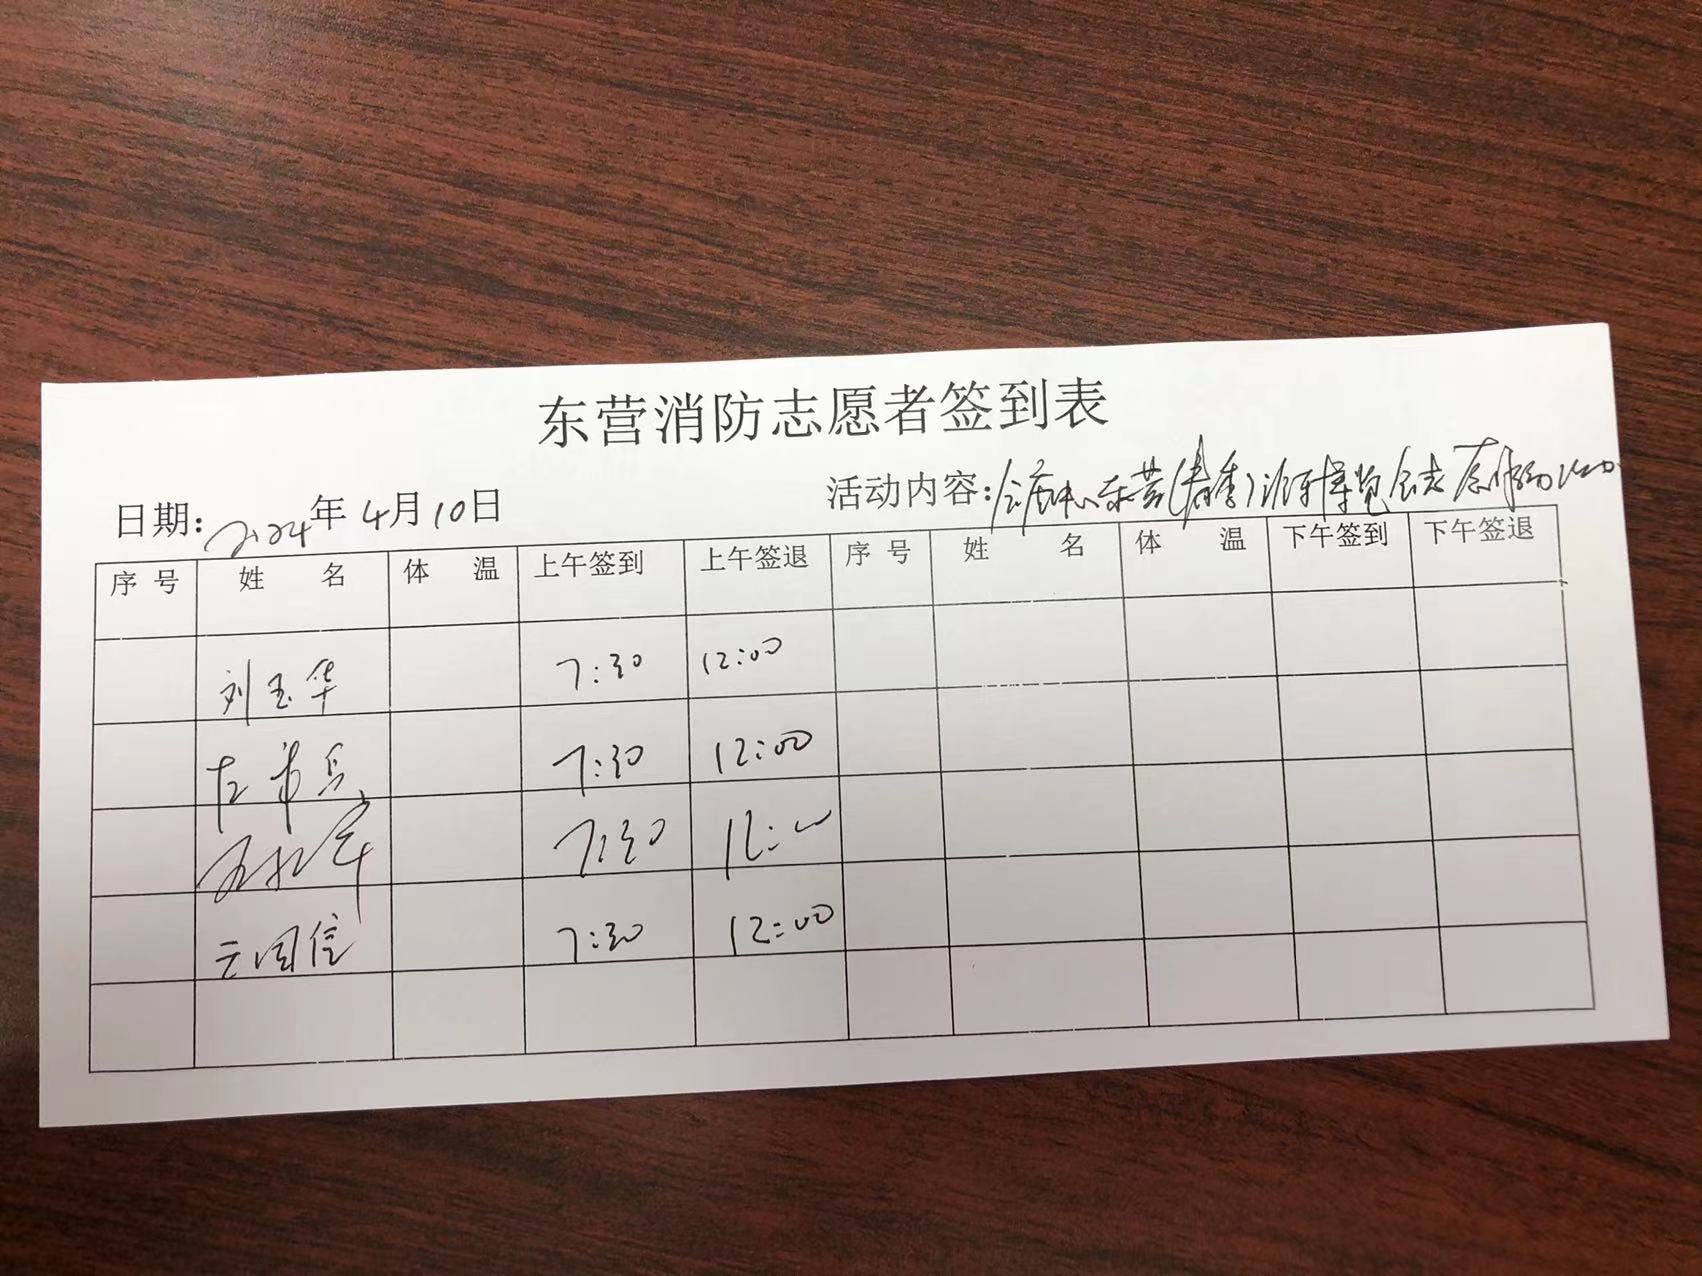 东营消防志愿者签到表
日期: 2024年 4月 10日 活动内容: 会展中心东营(春季)汽车博览会志愿
序号 姓 名 体 温 上午签到 上午签退 序号 姓 名 体 温 下午签到 下午签退
刘玉华 7:30 12:00
7:30 12:00
7:30 12:00
国信 7:30 12:00